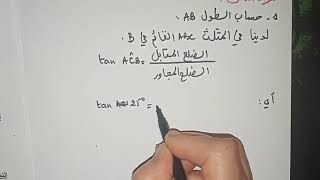 1. حساب الطول AB
لدينا في المثلث ABC القائم في B
tan AĈB = الضلع المقابل
الضلع المجاور
أي: tan 25° =